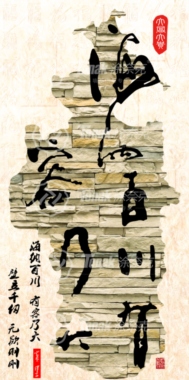 海纳百川有
容乃大
海纳百川 有容乃大
壁立千仞 无欲则刚